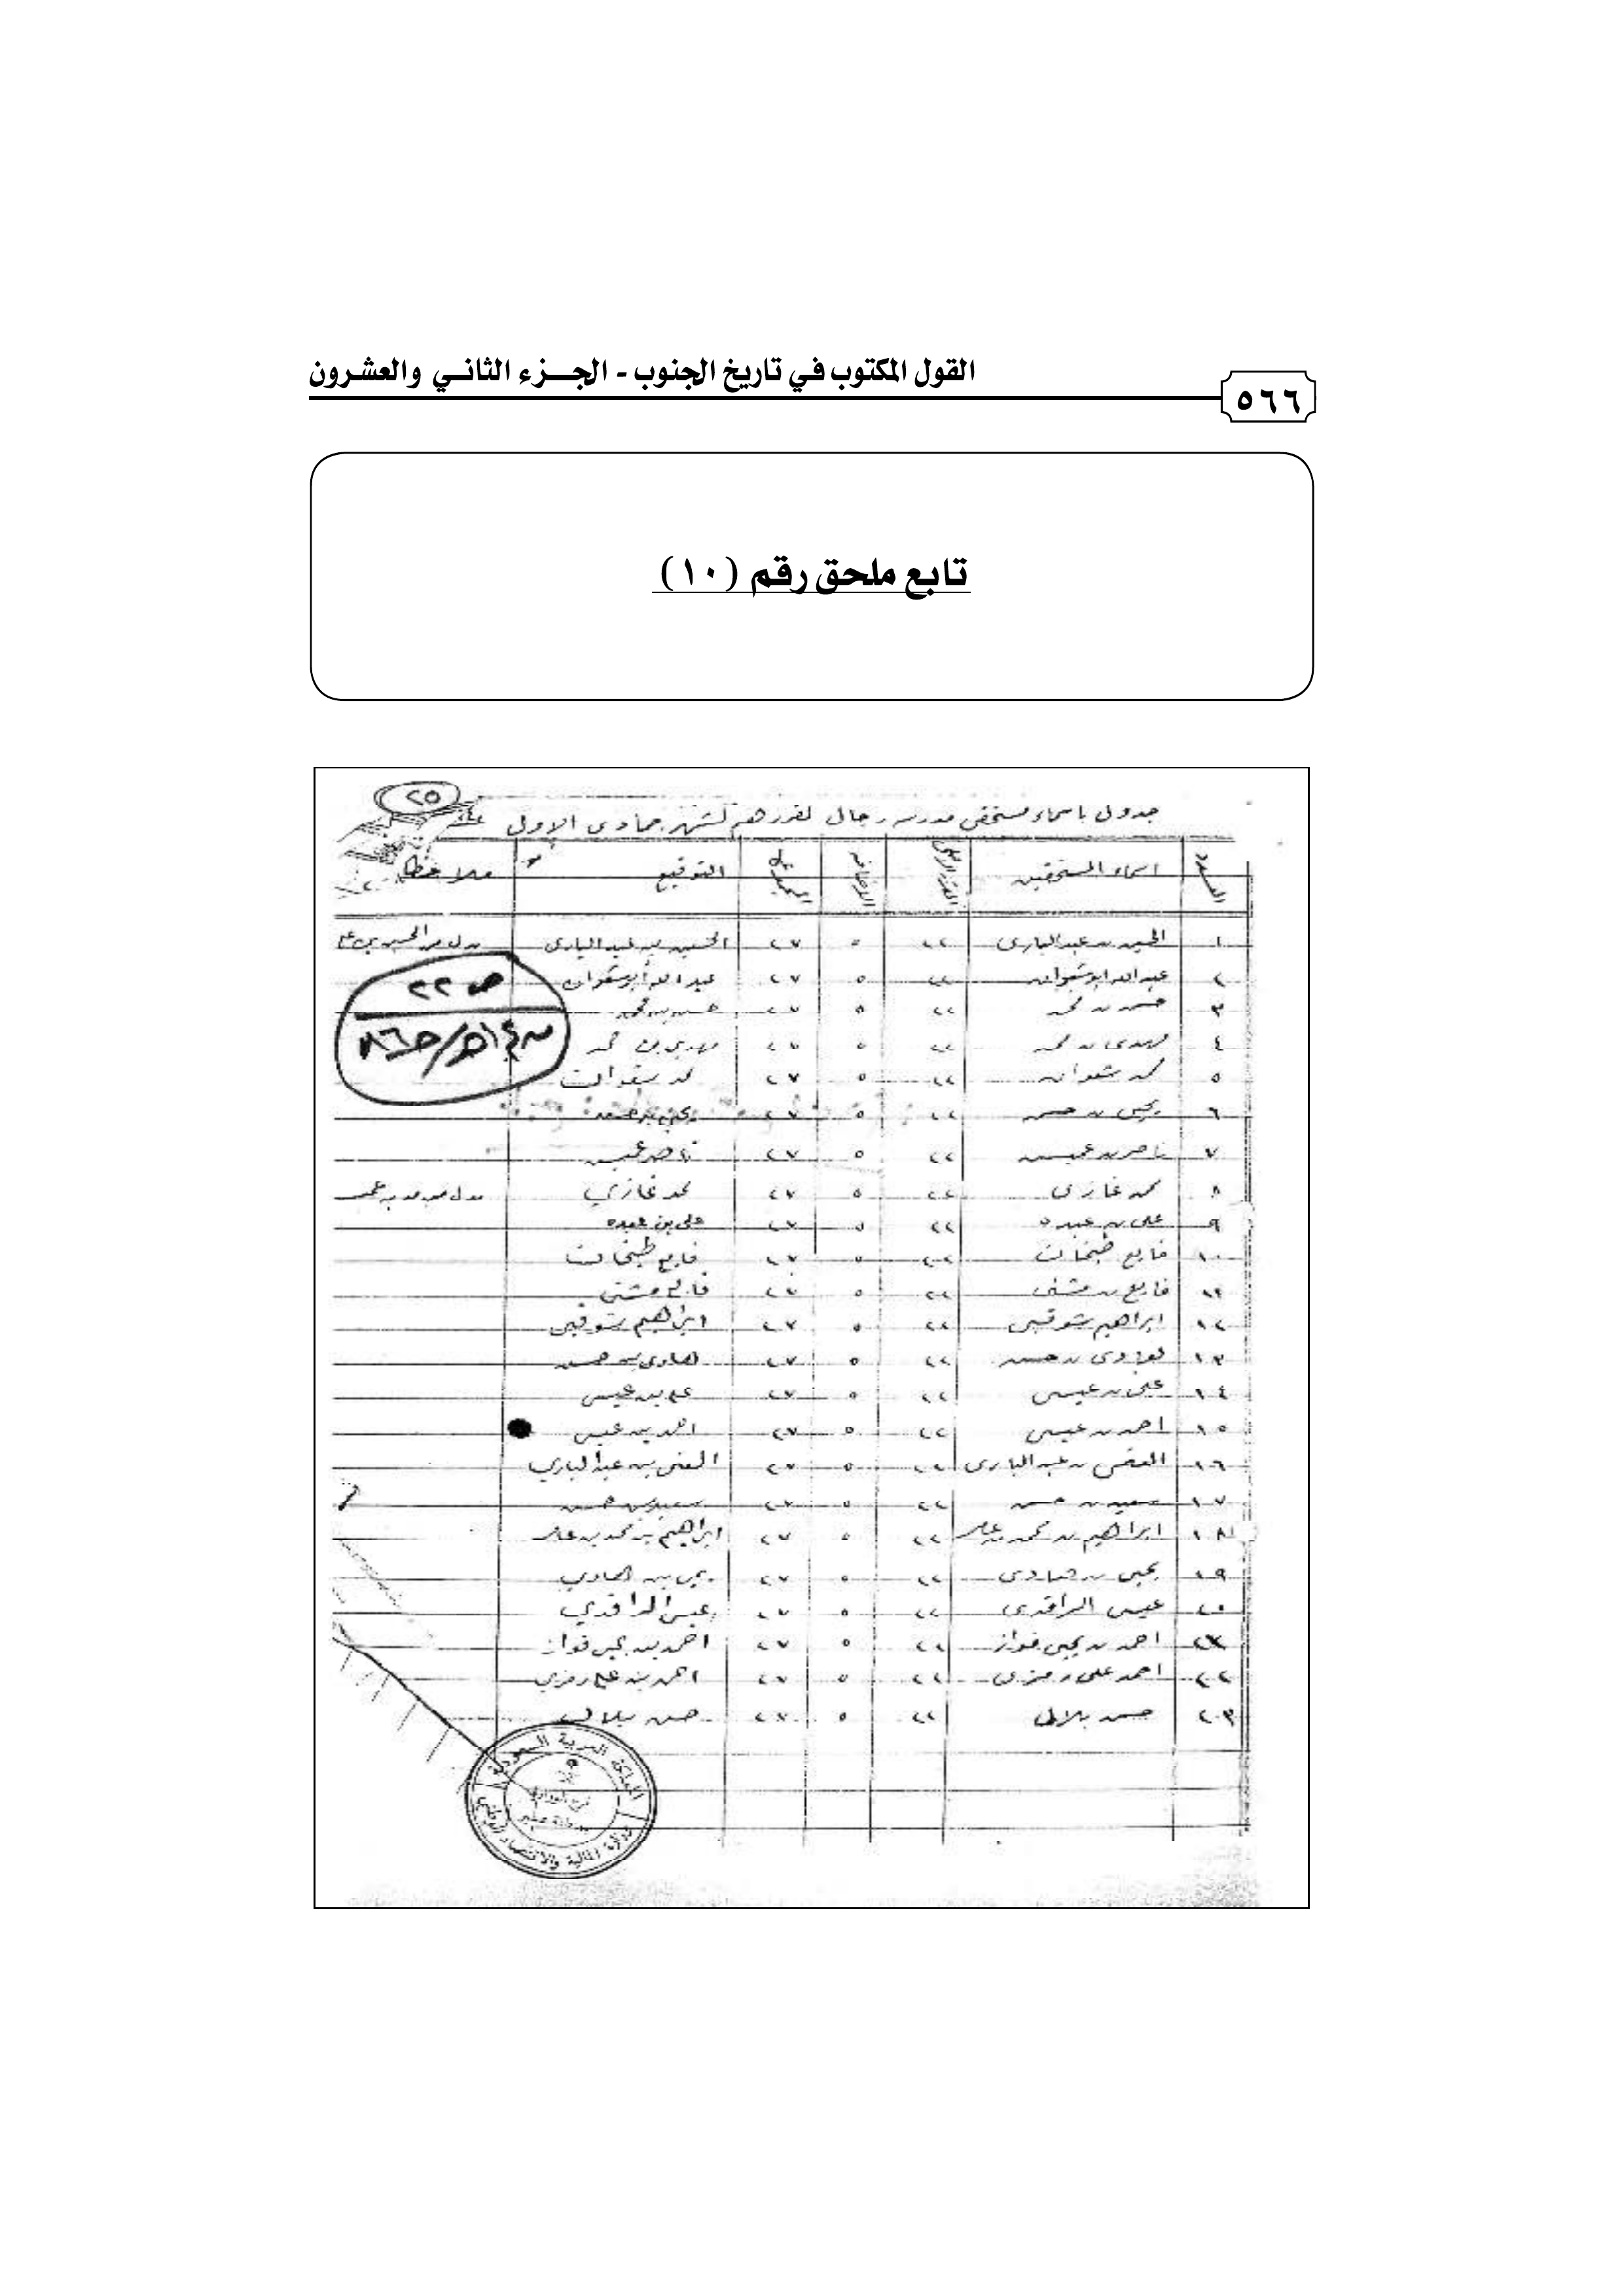 القول المكتوب في تاريخ الجنوب - الجزء الثاني والعشرون
٥٦٦
تابع ملحق رقم (١٠)
٢٥
جدول باسماء مستحقي مدرسة رجال لمقررهم لشهر جمادى الاولى
العدد اسماء المستحقين المقرر الاصلي الاضافه المجموع التوقيع ملاحظات
١ الحسين بن عبدالباري ٢٢ ٥ ٢٧ الحسين بن عبدالباري
٢ عبدالله ابوشعوان ٢٢ ٥ ٢٧ عبدالله أبوشعوان
ص ٢٢
٣ حسن بن محمد ٢٢ ٥ ٢٧ حسن بن محمد
٤ مهدي بن محمد ٢٢ ٥ ٢٧ مهدي بن محمد
٥ محمد شعوان ٢٢ ٥ ٢٧ محمد شعوان
٦ يحيى بن حسن ٢٢ ٥ ٢٧ يحيى بن حسن
٧ ناصر بن عميس ٢٢ ٥ ٢٧ ناصر عميس
٨ محمد غازي ٢٢ ٥ ٢٧ محمد غازي
٩ علي بن عبده ٢٢ ٥ ٢٧ علي بن عبده
١٠ فايع ٢٢ ٥ ٢٧ فايع
١١ فايع بن مشني ٢٢ ٥ ٢٧ فايع مشني
١٢ ابراهيم شوقبي ٢٢ ٥ ٢٧ ابراهيم شوقبي
١٣ هادي بن حسن ٢٢ ٥ ٢٧ هادي بن حسن
١٤ علي بن عيسى ٢٢ ٥ ٢٧ علي بن عيسى
١٥ احمد بن عيسى ٢٢ ٥ ٢٧ احمد بن عيسى
١٦ بن عبدالباري ٢٢ ٥ ٢٧ بن عبدالباري
١٧ سعيد بن حسن ٢٢ ٥ ٢٧ سعيد بن حسن
١٨ ابراهيم بن محمد بن عامر ٢٢ ٥ ٢٧ ابراهيم بن محمد بن عامر
١٩ يحيى بن هادي ٢٢ ٥ ٢٧ يحيى بن الهادي
٢٠ عيسى الراقدي ٢٢ ٥ ٢٧ عيسى الراقدي
٢١ احمد بن يحيى فواز ٢٢ ٥ ٢٧ احمد بن يحيى فواز
٢٢ احمد علي رمزي ٢٢ ٥ ٢٧ احمد بن علي رمزي
٢٣ حسن بلال ٢٢ ٥ ٢٧ حسن بلال
المملكة العربية السعودية
وزارة المالية والاقتصاد الوطني